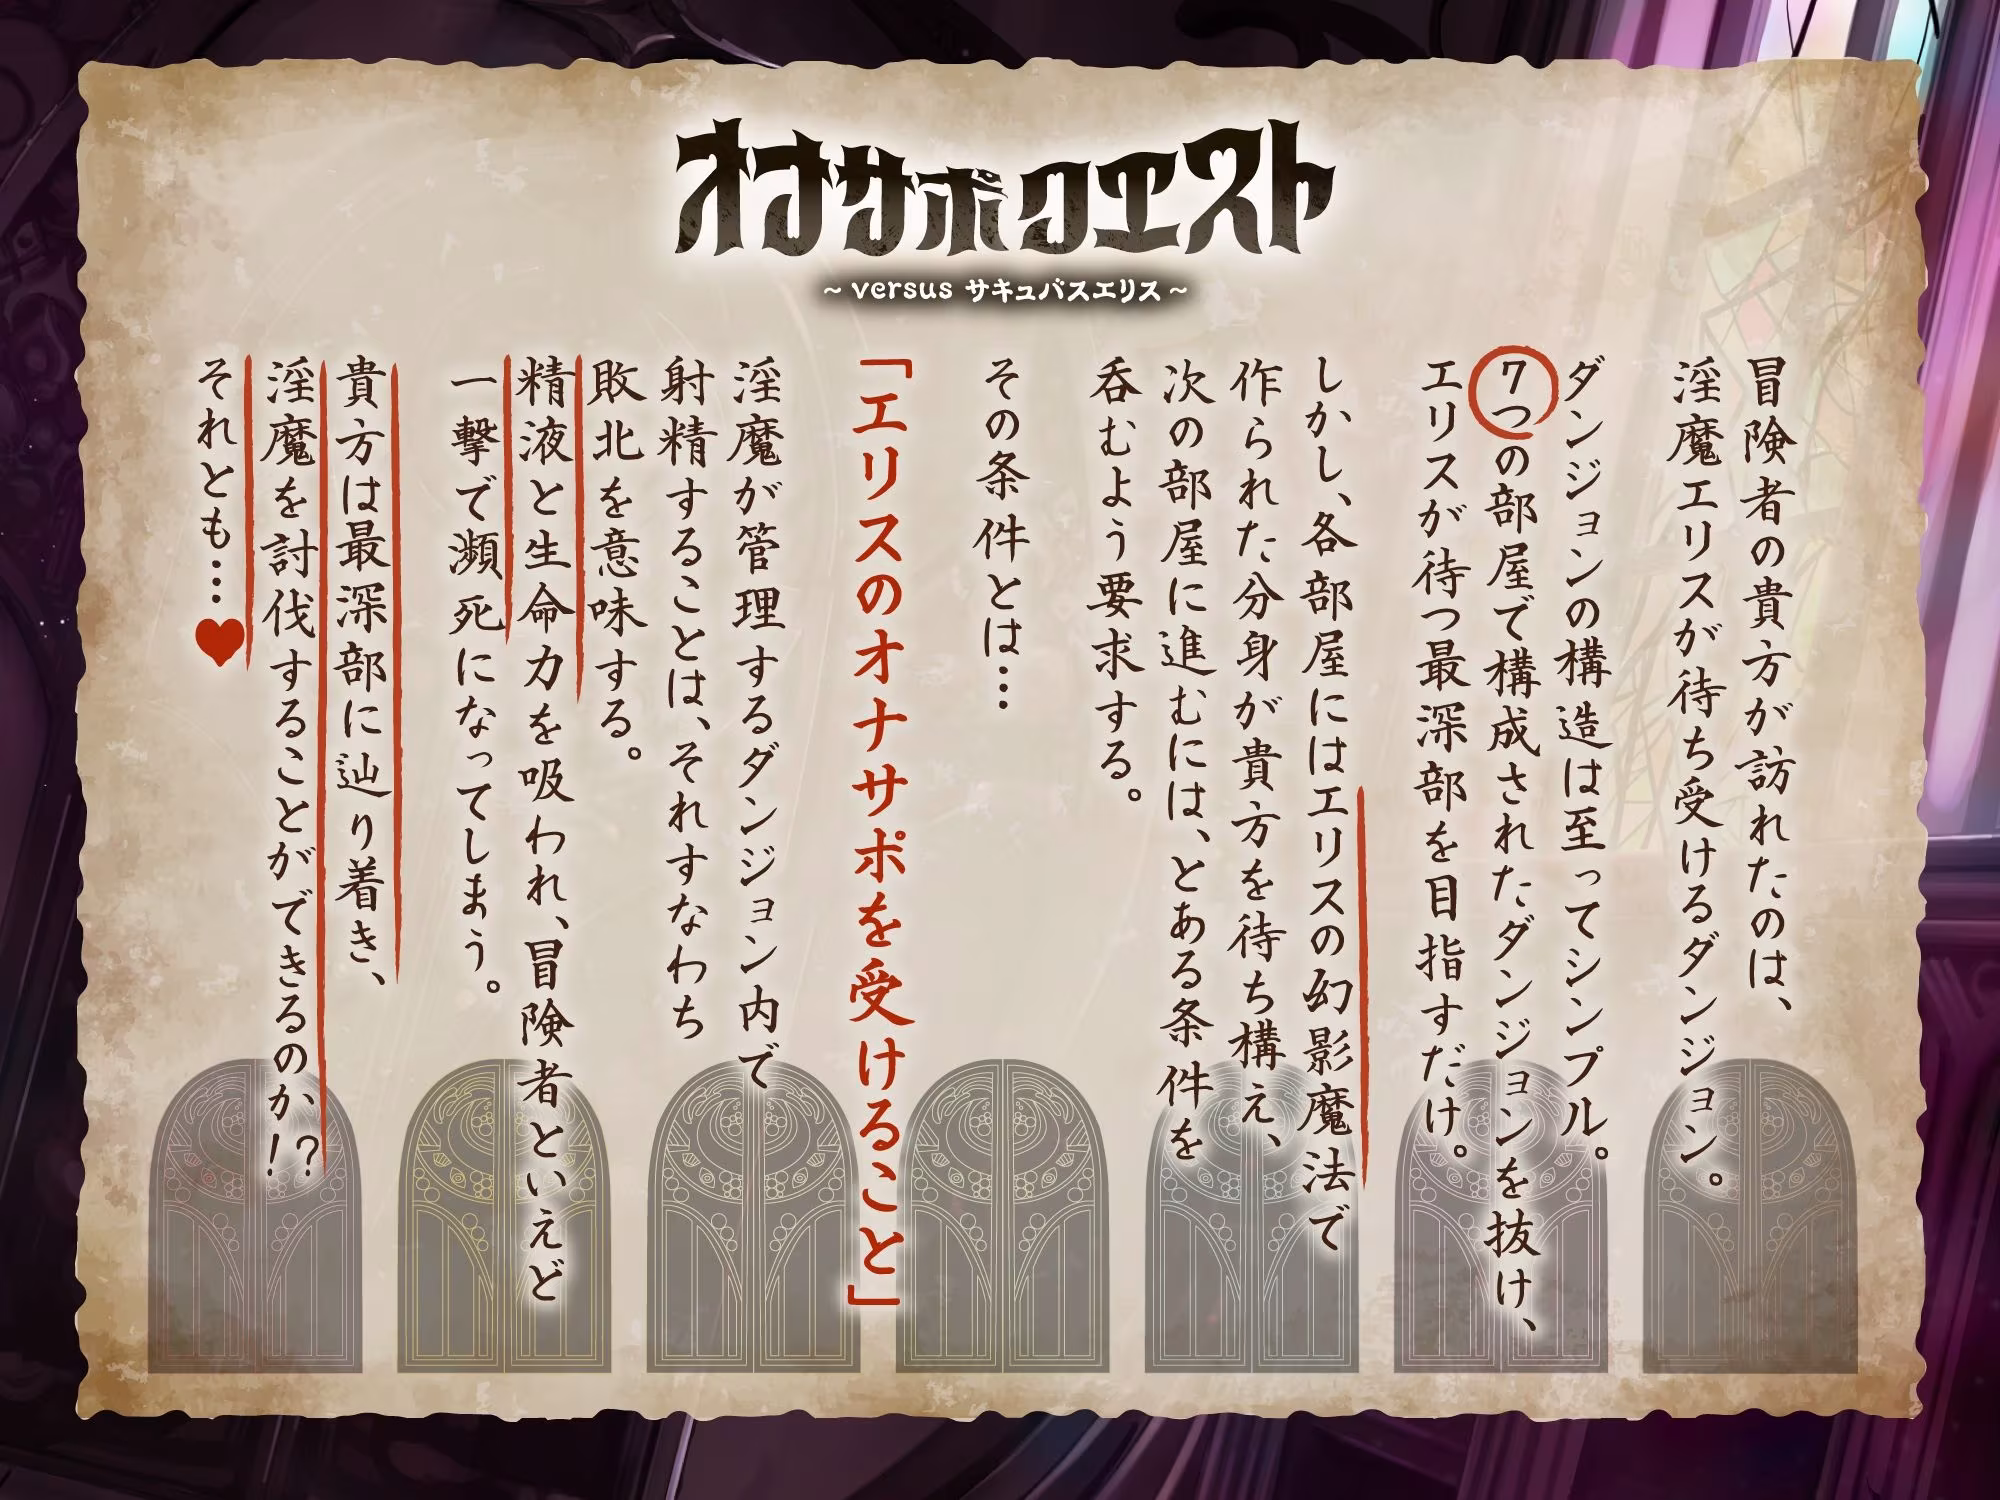 オナサポクエスト
~ versus サキュバスエリス ~
冒険者の貴方が訪れたのは、
淫魔エリスが待ち受けるダンジョン。
ダンジョンの構造は至ってシンプル。
7つの部屋で構成されたダンジョンを抜け、
エリスが待つ最深部を目指すだけ。
しかし、各部屋にはエリスの幻影魔法で
作られた分身が貴方を待ち構え、
次の部屋に進むには、とある条件を
呑むよう要求する。
その条件とは…
「エリスのオナサポを受けること」
淫魔が管理するダンジョン内で
射精することは、それすなわち
敗北を意味する。
精液と生命力を吸われ、冒険者といえど
一撃で瀕死になってしまう。
貴方は最深部に辿り着き、
淫魔を討伐することができるのか!?
それとも…♥